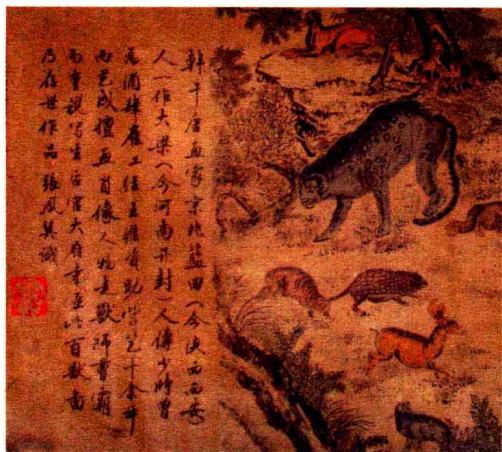 韩干唐画家京兆蓝田（今陕西西安
人一作大梁（今河南开封）人传少时曾
为酒肆雇工经王维资助学艺十余年
而艺成擅画肖像人物走兽师曹霸
而重视写生后官太府寺丞此百兽图
乃存世作品 张凤翼识